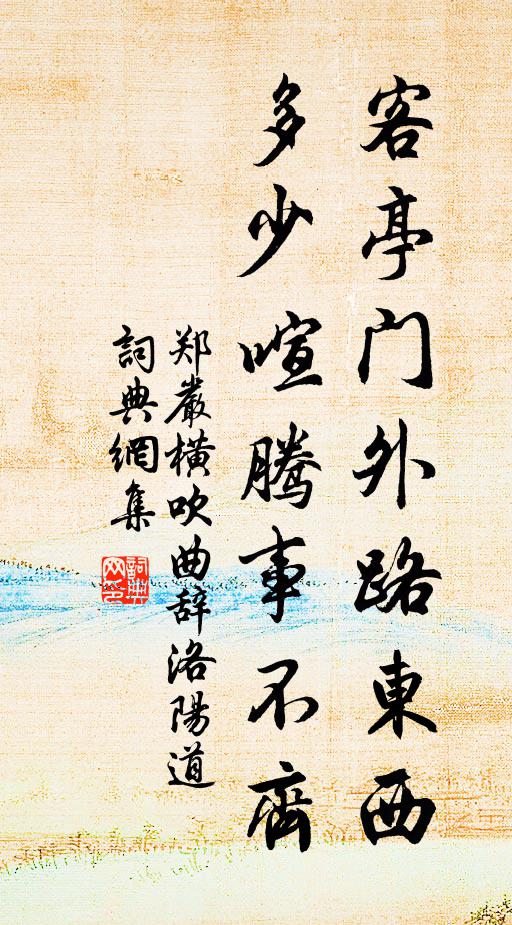 客亭门外路東西
多少喧腾事不齊
郑嚴横吹曲辞洛陽道
詞典網集